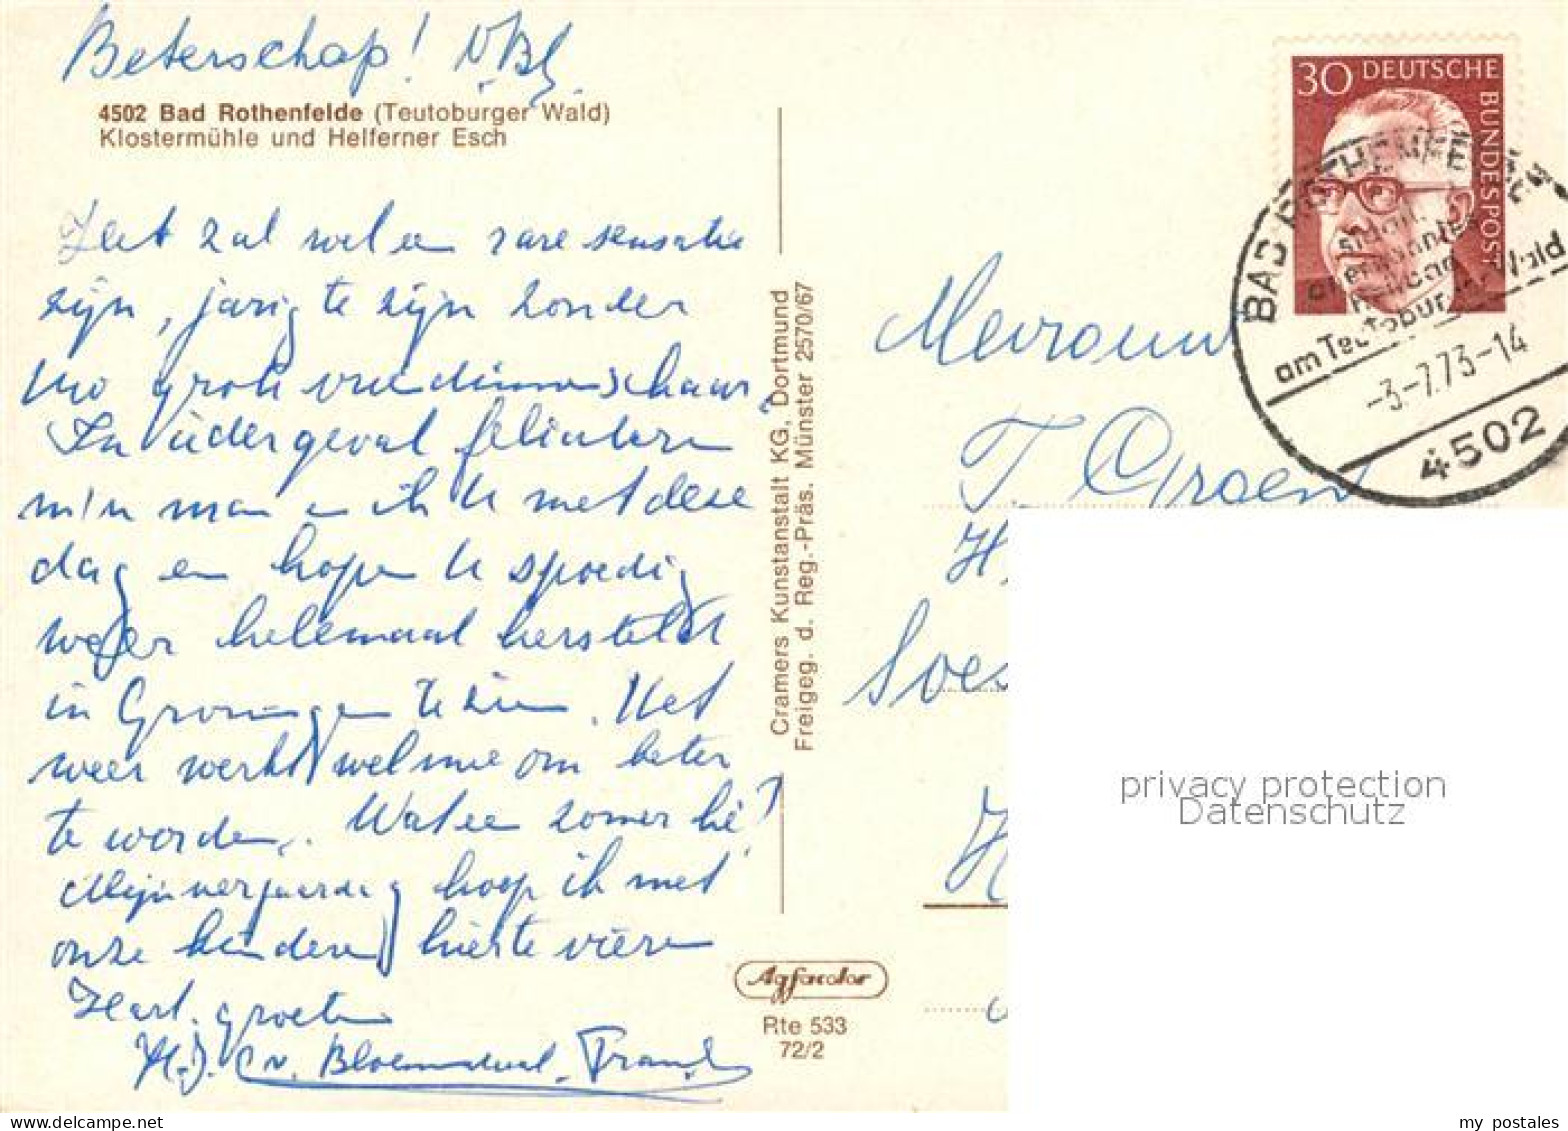 Beterschap! v. Bl.
4502 Bad Rothenfelde (Teutoburger Wald)
Klostermühle und Helferner Esch
zal wel een rare sensatie
zijn, jarig te zijn zonder
grote vriendinnenschaar.
In ieder geval feliciteren
mijn man en ik U met deze
dag en hopen U spoedig
weer helemaal hersteld
in Groningen te zien. Het
weer werkt wel mee om beter
te worden. Wat een zomer hè?
Mijn verjaardag hoop ik met
onze kinderen hier te vieren
Hart. groeten
H.J. v. Bloemendaal
Cramers Kunstanstalt KG, Dortmund
Freigeg. d. Reg.-Präs. Münster 2570/67
Agfacolor
Rte 533
72/2
30 DEUTSCHE BUNDESPOST
BAD ROTHENFELDE
am Teutoburger Wald
-3-7.73-14
4502
Mevrouw
T.
H.
Soes
privacy protection
Datenschutz
my postales